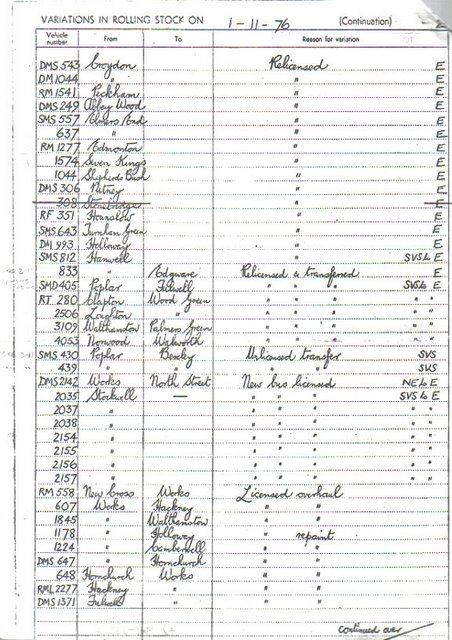 VARIATIONS IN ROLLING STOCK ON 1-11-76 (Continuation)
Vehicle number From To Reason for variation
DMS 543 Croydon Relicensed E
DM 1044 " " E
RM 1541 Peckham " E
DMS 249 Abbey Wood " E
SMS 557 Palmers Green " E
637 " " E
RM 1277 Edmonton " E
1574 Seven Kings " E
1044 Shepherds Bush " E
DMS 306 Putney " E
308 Stonebridge " E
RF 351 Hounslow " E
SMS 643 Turnham Green " E
DM 993 Holloway " E
SMS 812 Hanwell " SVS & E
833 " Edgware Relicensed & transferred E
SMD 405 Poplar Fulwell " " " SVS & E
RT 280 Clapton Wood Green " " " " "
2506 Loughton " " " " " "
3109 Walthamstow Palmers Green " " " " "
4053 Norwood Walworth " " " " "
SMS 430 Poplar Bexley Unlicensed transfer SVS
439 " " " " SVS
DMS 2142 Works North Street New bus licensed NEL E
2035 Stockwell — " " " SVS & E
2037 " " " " " "
2038 " " " " " "
2154 " " " " " "
2155 " " " " " "
2156 " " " " " "
2157 " " " " " "
RM 558 New Cross Works Licensed overhaul
607 Works Hackney " "
1845 " Walthamstow " "
1178 " Holloway " repaint
1224 " Camberwell " "
DMS 647 " Hornchurch " "
648 Hornchurch Works " "
RML 2277 Hackney " " "
DMS 1371 Fulwell " " "
continued over